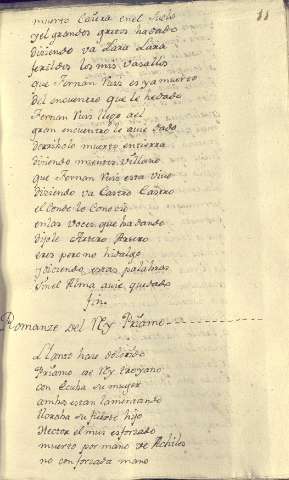 11
muerto Cayera en el suelo
y el grandes gritos ha dado
diziendo va Lara Lara
feridlos los mis vasallos
que Fernan Ruis es ya muerto
del encuentro que le he dado
Fernan Ruis llego a el
gran encuentro le auie dado
derribolo muerto en tierra
diziendo mientes villano
que Fernan Ruis esta viuo
diziendo va Castro Castro
el Conde lo Conocio
en las voces que ha dando
dijole Arrero Arrero
eres pero no hidalgo
y diciendo estas palabras
sin el Alma auie quedado
fin.
Romanze del Rey Priamo
Llanto haze dolorido
Priamo el Rey troyano
con Ecuba su muger
ambos estan lamentando
lloraba su fuerte hijo
Hector el mui esforzado
muerto por mano de Achiles
no con forzada mano